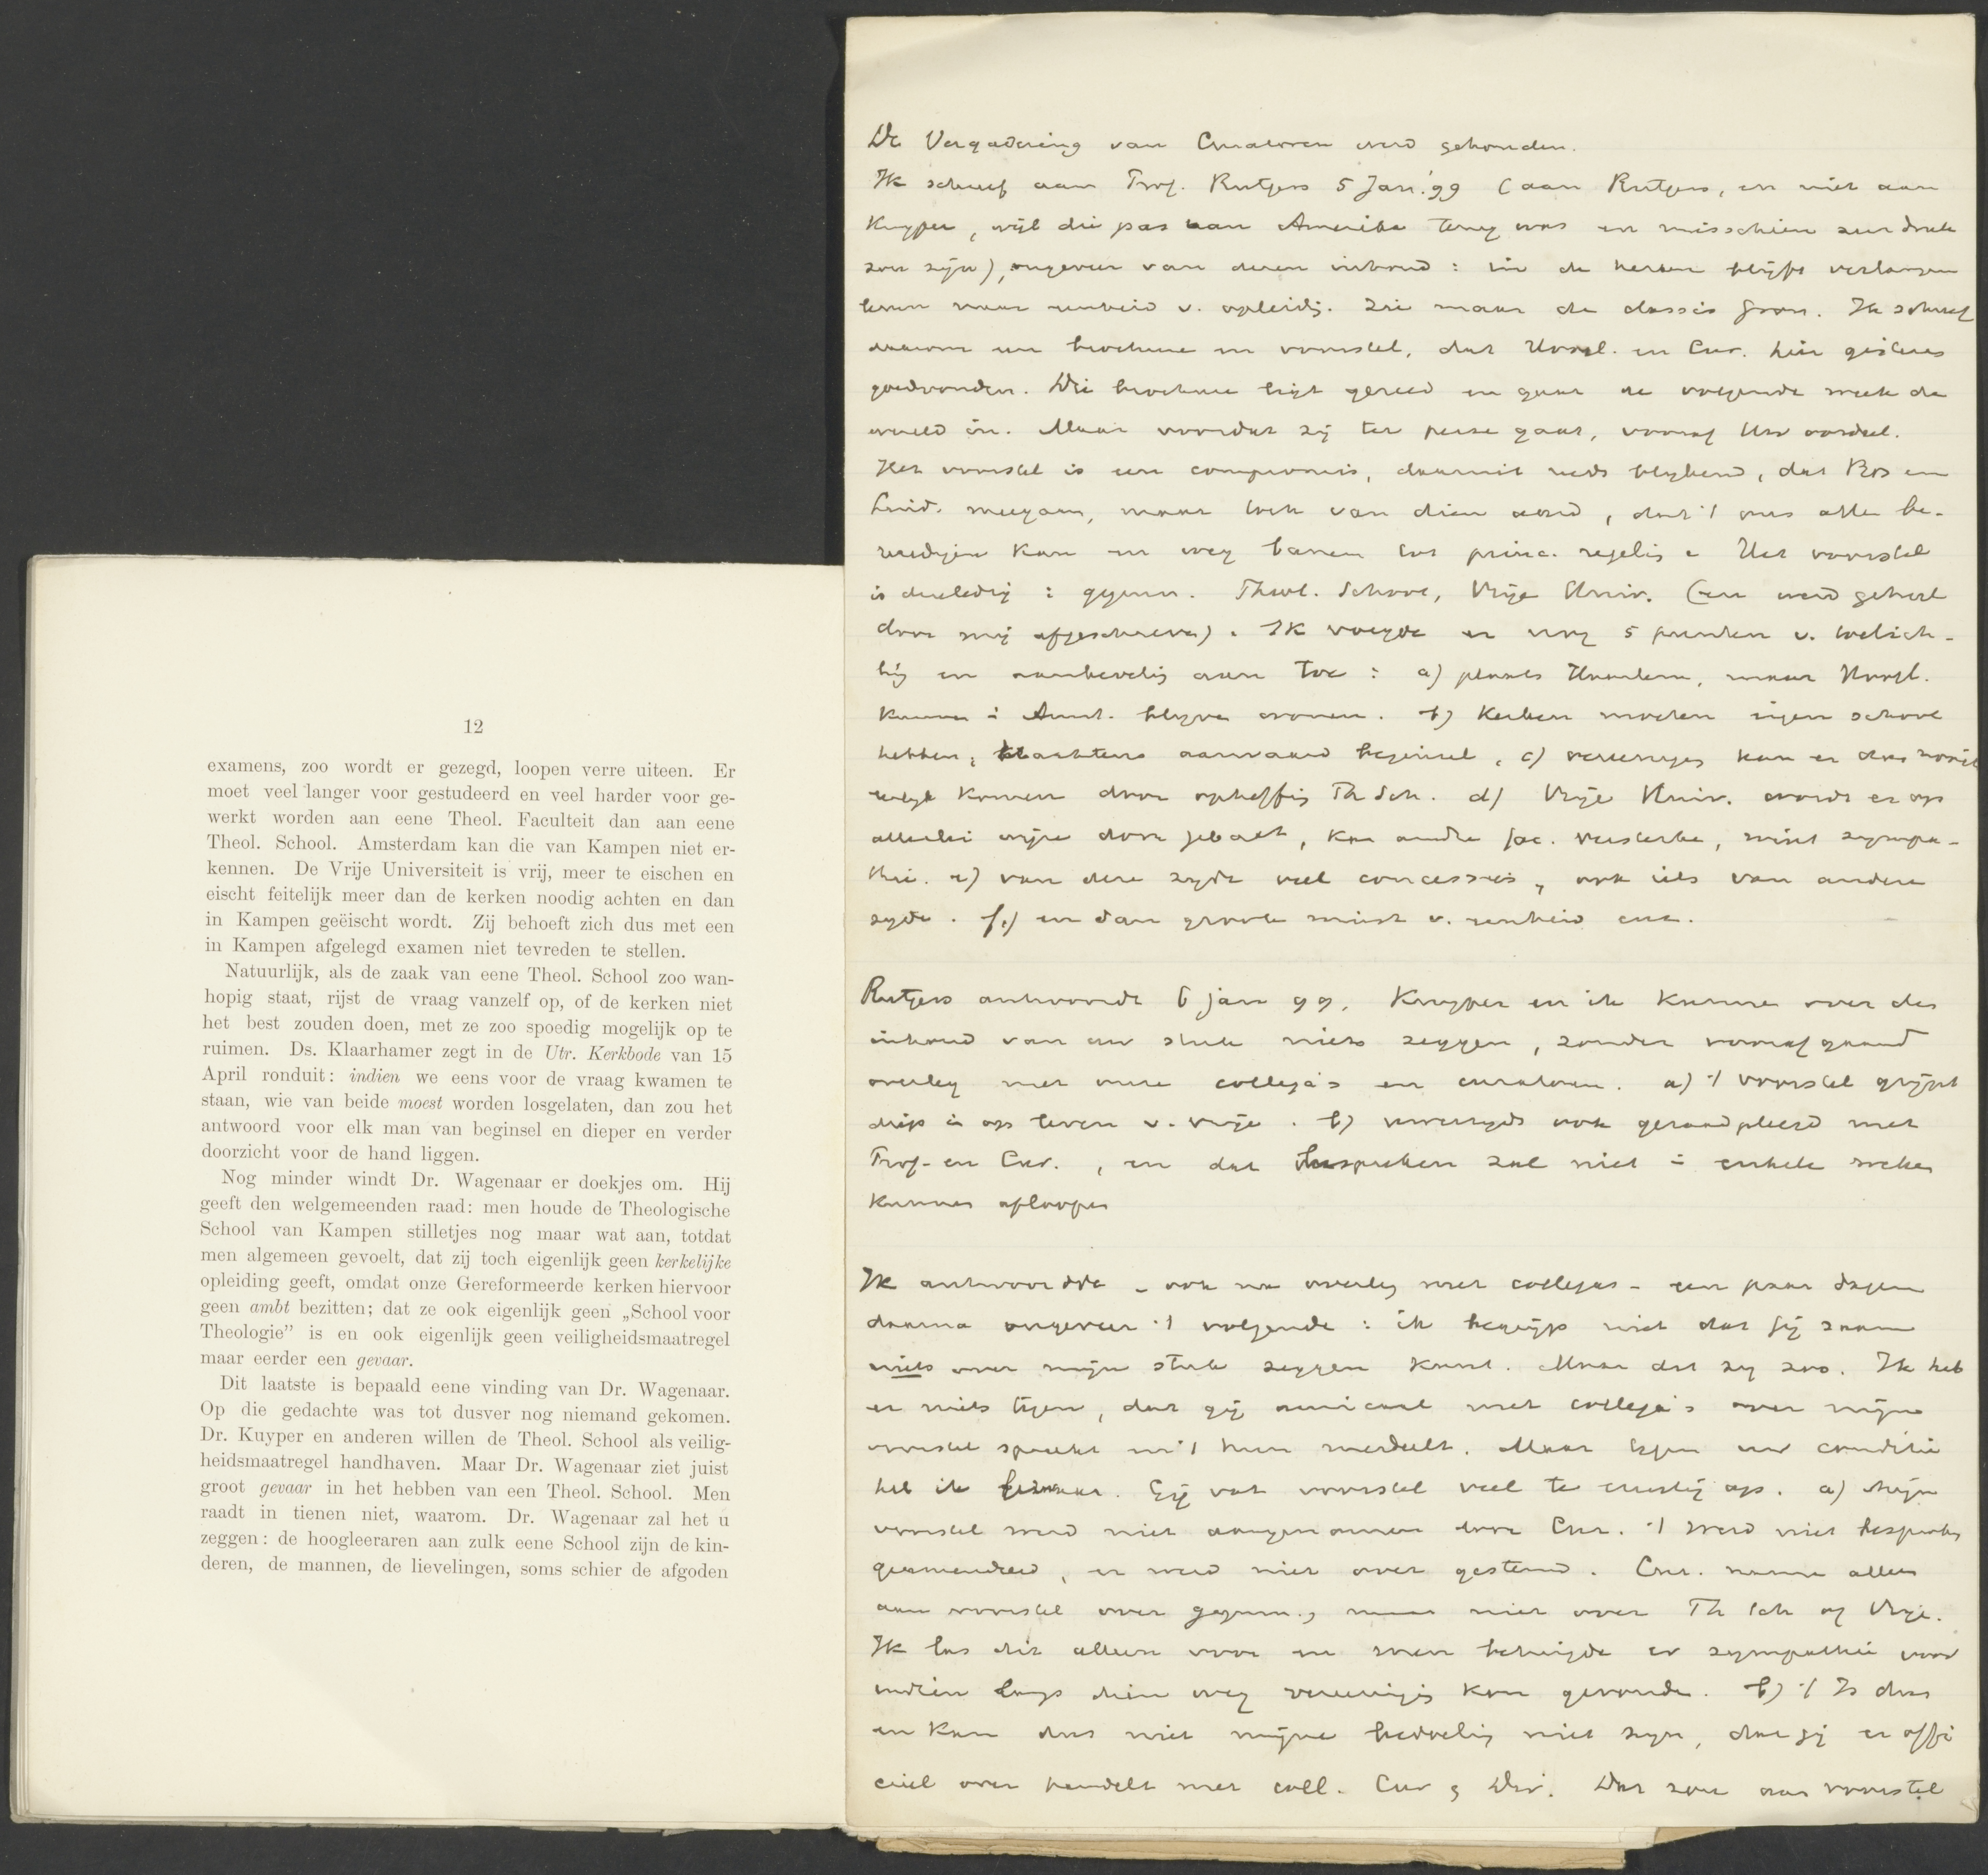 12
examens, zoo wordt er gezegd, loopen verre uiteen. Er
moet veel langer voor gestudeerd en veel harder voor ge-
werkt worden aan eene Theol. Faculteit dan aan eene
Theol. School. Amsterdam kan die van Kampen niet er-
kennen. De Vrije Universiteit is vrij, meer te eischen en
eischt feitelijk meer dan de kerken noodig achten en dan
in Kampen geëischt wordt. Zij behoeft zich dus met een
in Kampen afgelegd examen niet tevreden te stellen.
Natuurlijk, als de zaak van eene Theol. School zoo wan-
hopig staat, rijst de vraag vanzelf op, of de kerken niet
het best zouden doen, met ze zoo spoedig mogelijk op te
ruimen. Ds. Klaarhamer zegt in de Utr. Kerkbode van 15
April ronduit: indien we eens voor de vraag kwamen te
staan, wie van beide moest worden losgelaten, dan zou het
antwoord voor elk man van beginsel en dieper en verder
doorzicht voor de hand liggen.
Nog minder windt Dr. Wagenaar er doekjes om. Hij
geeft den welgemeenden raad: men houde de Theologische
School van Kampen stilletjes nog maar wat aan, totdat
men algemeen gevoelt, dat zij toch eigenlijk geen kerkelijke
opleiding geeft, omdat onze Gereformeerde kerken hiervoor
geen ambt bezitten; dat ze ook eigenlijk geen „School voor
Theologie” is en ook eigenlijk geen veiligheidsmaatregel
maar eerder een gevaar.
Dit laatste is bepaald eene vinding van Dr. Wagenaar.
Op die gedachte was tot dusver nog niemand gekomen.
Dr. Kuyper en anderen willen de Theol. School als veilig-
heidsmaatregel handhaven. Maar Dr. Wagenaar ziet juist
groot gevaar in het hebben van een Theol. School. Men
raadt in tienen niet, waarom. Dr. Wagenaar zal het u
zeggen: de hoogleeraren aan zulk eene School zijn de kin-
deren, de mannen, de lievelingen, soms schier de afgoden
De Vergadering van Curatoren werd gehouden.
Ik schreef aan Prof. Rutgers 5 Jan. '99 (aan Rutgers, en niet aan
Kuyper, wijl die pas van Amerika terug was en misschien zeer druk
zou zijn), ongeveer van dezen inhoud: in de kerken blijft verlangen
leven naar eenheid v. opleidg. Zie maar de classis Gron. Ik schreef
daarom een brochure en voorstel, dat Hoogl. en Cur. hier gisteren
goedvonden. Die brochure ligt gereed en gaat de volgende week de
wereld in. Maar voordat zij ter perse gaat, vooraf Uw oordeel.
Het voorstel is een compromis, daaruit reeds blijkend, dat Bos en
Lind. meegaan, maar toch van dien aard, dat 't ons allen be-
vredigen kan en weg banen tot princ. regelig. Het voorstel
is drieledig: gymn. Theol. School, Vrije Univ. (en werd geheel
door mij afgeschreven). Ik voegde er nog 5 punten v. toelich-
tig en aanbevelig aan toe: a) plaats Haarlem, maar Hoogl.
kunnen i Amst. blijven wonen. b) Kerken moeten eigen school
hebben, krachtens aanvaard beginsel, c) vereenigg kan er dus nooit
komen door opheffig Th Sch. d) Vrije Univ. wordt er op
allerlei wijze door gebaat, kan andre fac. versterke, wint sympa-
thie. e) van dere zijde veel concessies, ook iets van andere
zijde. f.) en dan groote winst v. eenheid enz.
Rutgers antwoordt 6 jan 99. Kuyper en ik kunnen over den
inhoud van uw stuk niets zeggen, zonder voorafgaand
overleg met onze collega's en curatoren. a) 't voorstel grijpt
diep in op leven v. vrije. b) uwerzijds ook geraadpleegd met
Prof. en Cur., en dat bespreken zal niet i enkele weken
kunnen afloopen
Ik antwoordde - ook na overleg met collegas - een paar dagen
daarna ongeveer 't volgende: ik begrijp niet dat gij saam
niets over mijn stuk zeggen kunt. Maar dat zij zoo. Ik heb
er niets tegen, dat gij amicaal met collega's over mijn
voorstel spreekt en 't hun meedeelt. Maar tegen uw conditie
heb ik bezwaar. Gij vat voorstel veel te ernstig op. a) Mijn
voorstel werd niet aangenomen door Cur. 't werd niet besproken
geamendeerd, er werd niet over gestemd. Cur. namen alleen
aan voorstel over gymn., maar niet over Th Sch of Vrije.
Ik las dit alleen voor en men betuigde er sympathie voor
indien langs dien weg vereenigig kon gevonde. b) 't Is dus
en kan dus niet mijne bedoelig niet zijn, dat gij er offi
cieel over handelt met coll. Cur & Dir. Dat zou aan voorstel